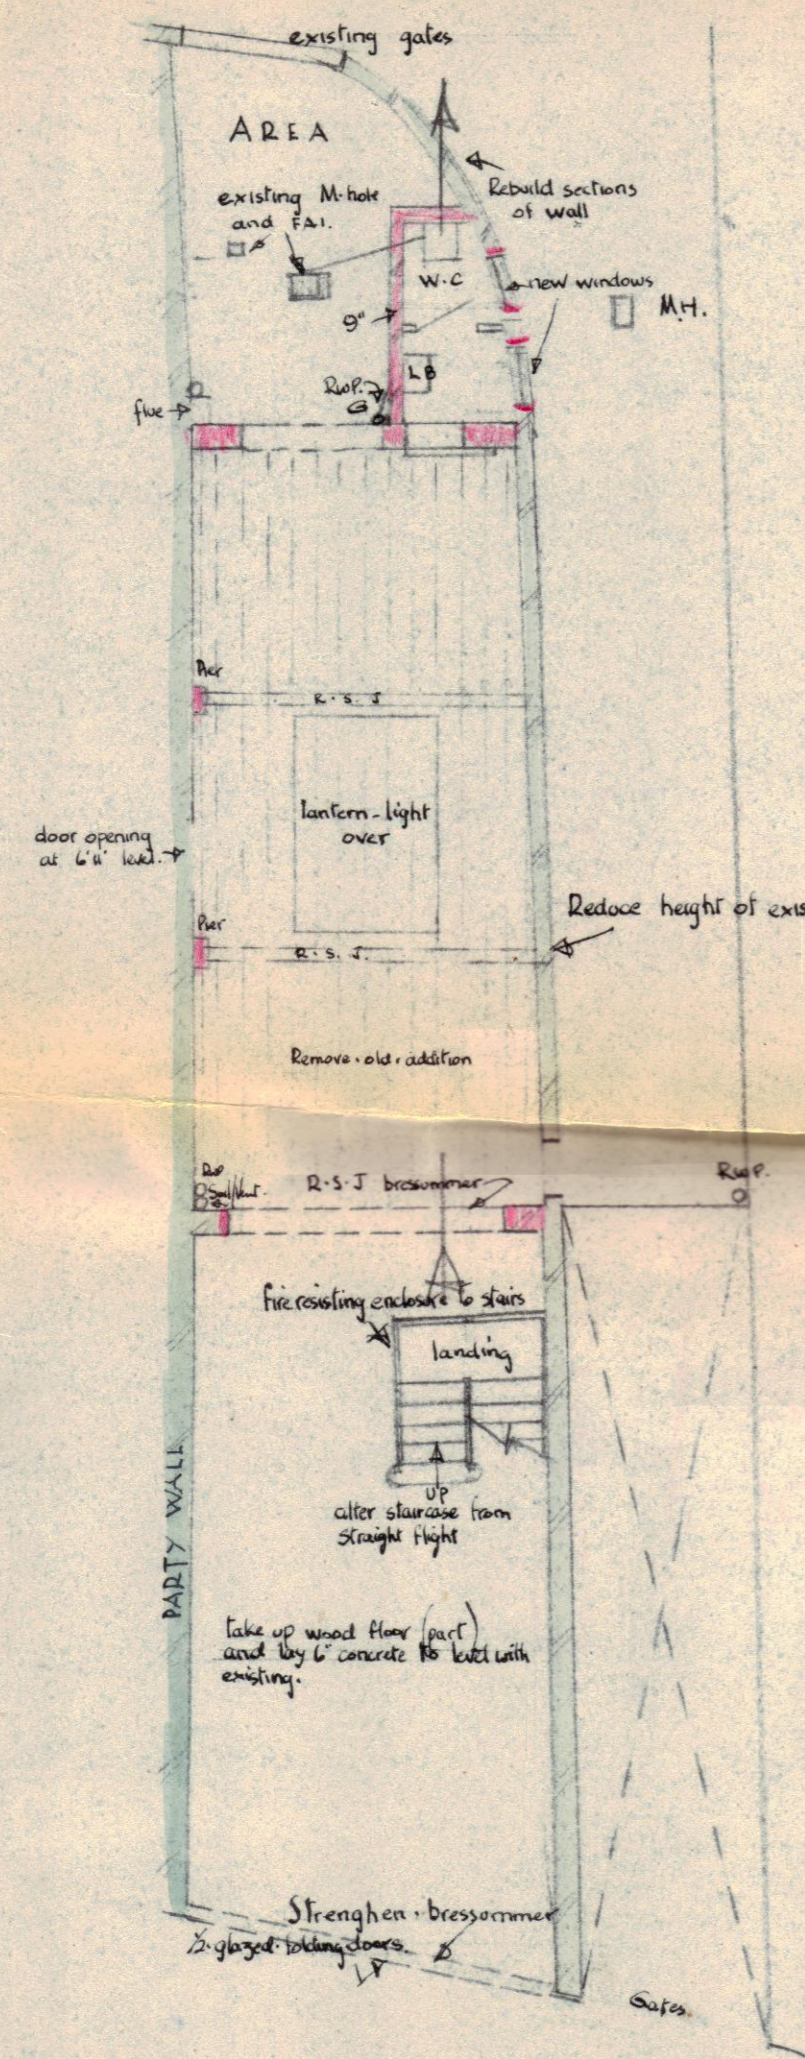 existing gates
AREA
Rebuild sections
of wall
existing M·hole
and F.A.I.
W.C
new windows
M.H.
9"
L B
RWP.
G
flue
Pier
R.S.J
lantern-light
over
door opening
at 6'11" level.
Reduce height of exis
Pier
R.S.J.
Remove·old·addition
RWP
Soil/Vent.
R·S·J bressummer
RWP.
fire resisting enclosure to stairs
landing
UP
alter staircase from
straight flight
PARTY WALL
take up wood floor (part)
and lay 6" concrete to level with
existing.
Strenghen·bressommer
½·glazed·folding doors.
Gates.